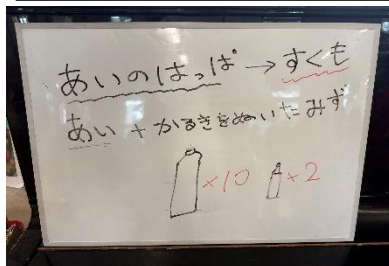 あいのはっぱ→すくも
あい+かるきをぬいたみず
×10 ×2